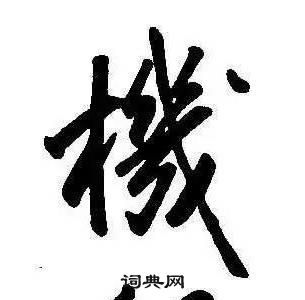 機
词典网